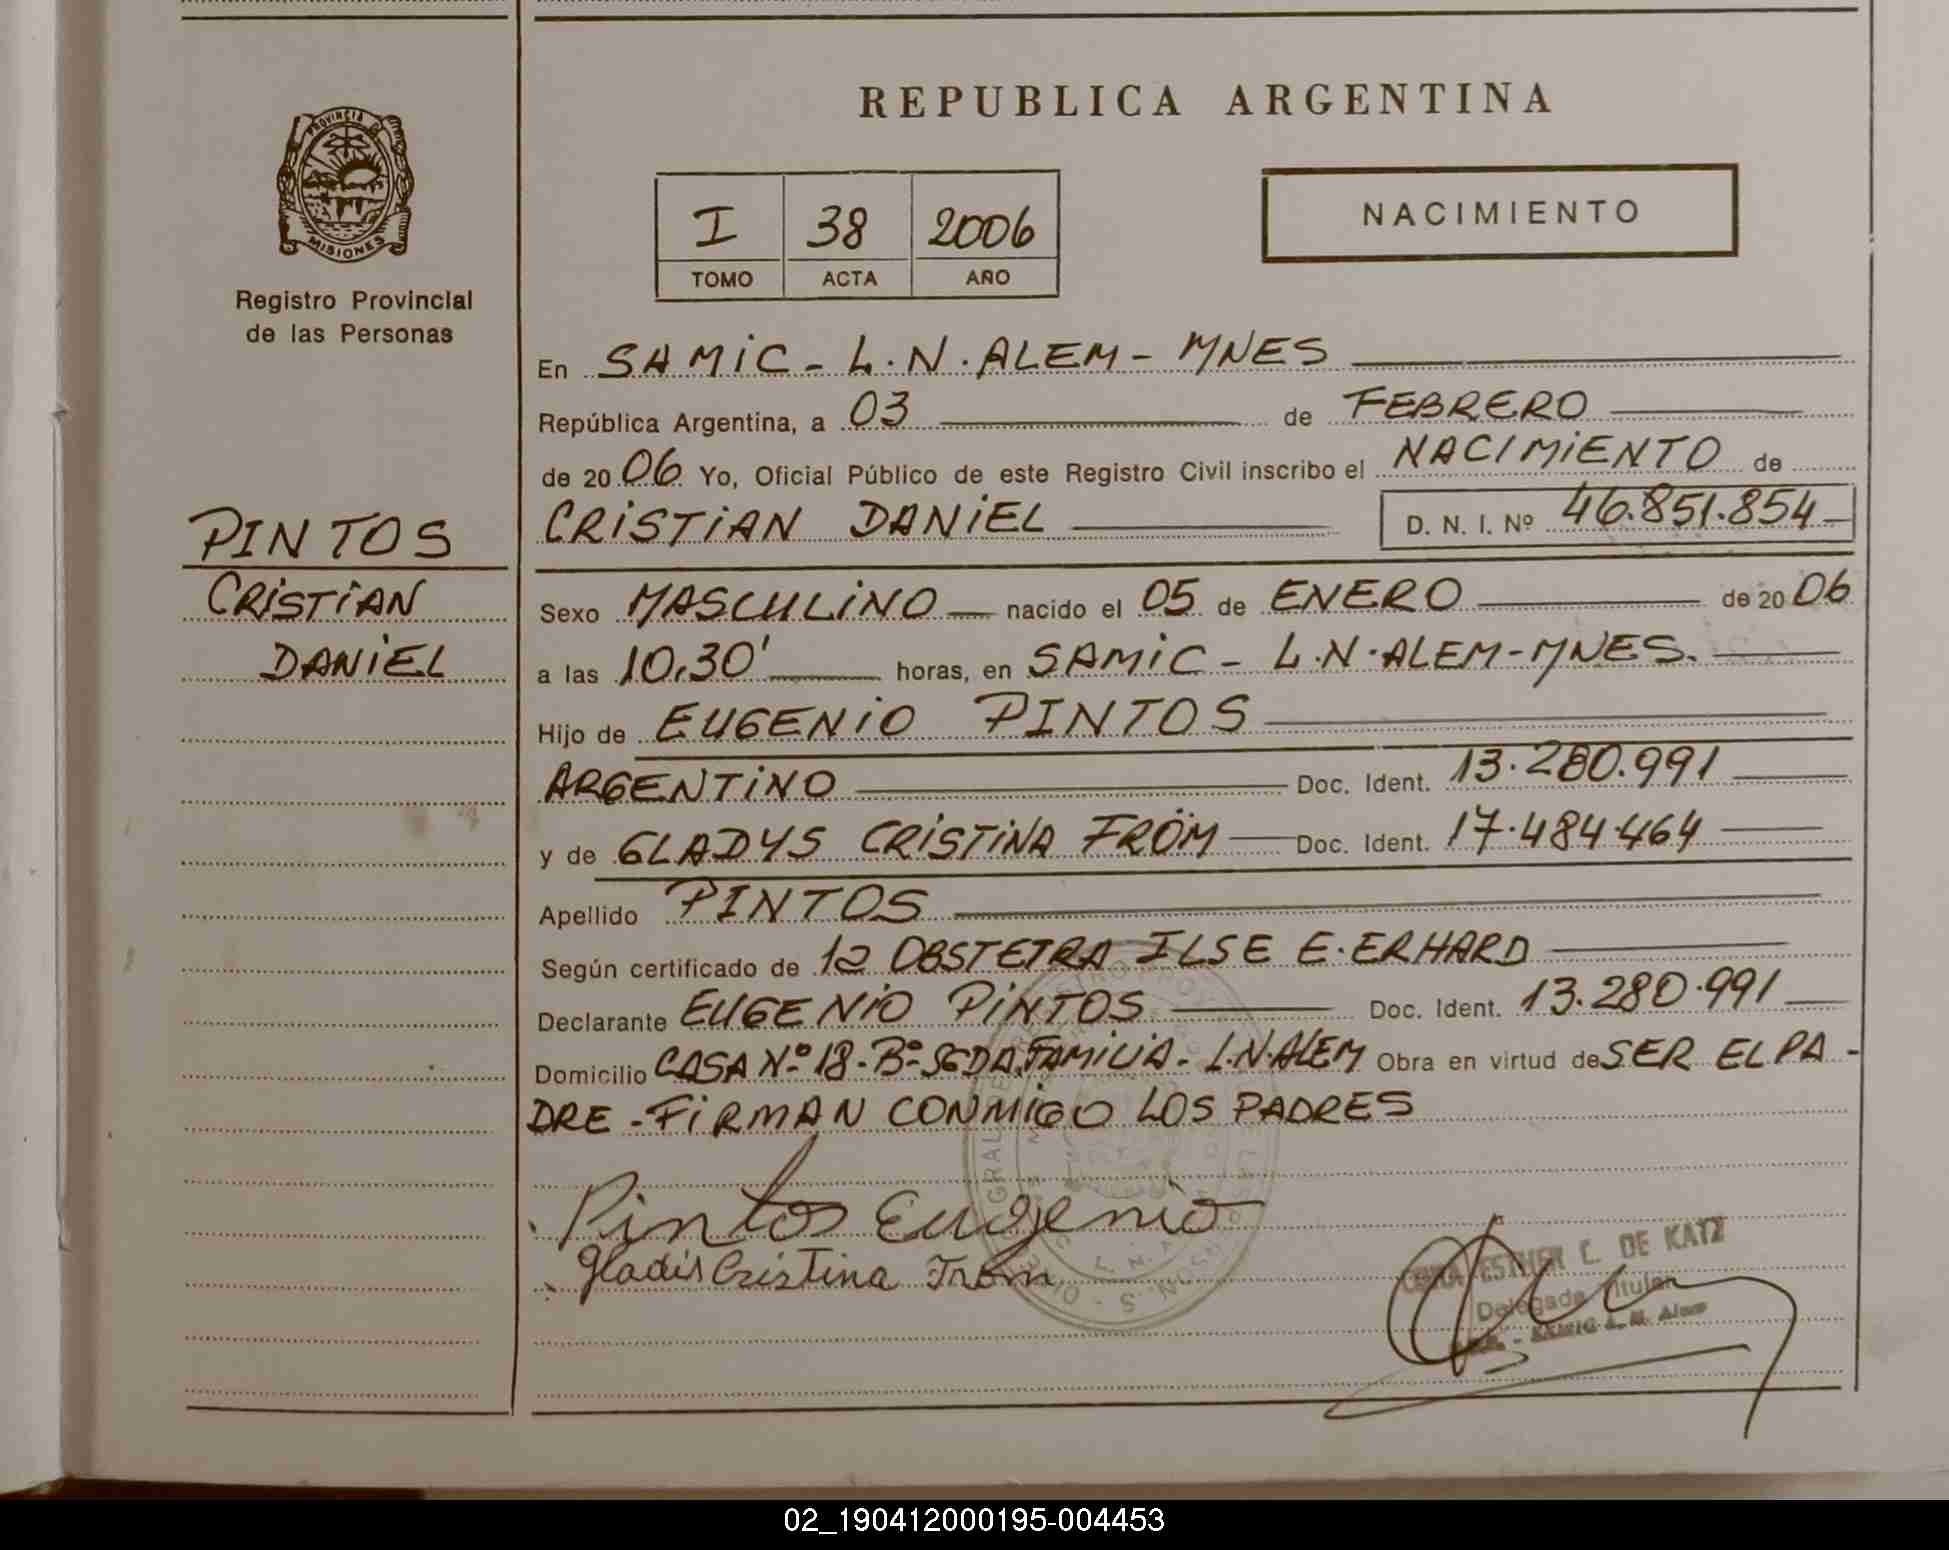 REPUBLICA ARGENTINA
PROVINCIA DE
MISIONES
Registro Provincial
de las Personas
I 38 2006
TOMO ACTA AÑO
NACIMIENTO
En SAMIC - L.N.ALEM - MNES
República Argentina, a 03 de FEBRERO
de 2006 Yo, Oficial Público de este Registro Civil inscribo el NACIMIENTO de
CRISTIAN DANIEL D. N. I. Nº 46.851.854
PINTOS
CRISTIAN
DANIEL
Sexo MASCULINO nacido el 05 de ENERO de 2006
a las 10,30' horas, en SAMIC - L.N.ALEM-MNES.
Hijo de EUGENIO PINTOS
ARGENTINO Doc. Ident. 13.280.991
y de GLADYS CRISTINA FRÖM Doc. Ident. 17.484.464
Apellido PINTOS
Según certificado de la OBSTETRA ILSE E. ERHARD
Declarante EUGENIO PINTOS Doc. Ident. 13.280.991
Domicilio CASA Nº 18-Bº SGDA.FAMILIA - L.N.ALEM Obra en virtud de SER EL PA-
DRE - FIRMAN CONMIGO LOS PADRES
Pintos Eugenio
Gladis Cristina From
ESTHER C. DE KATZ
Delegada Titular
SAMIC L. N. Alem
02_190412000195-004453